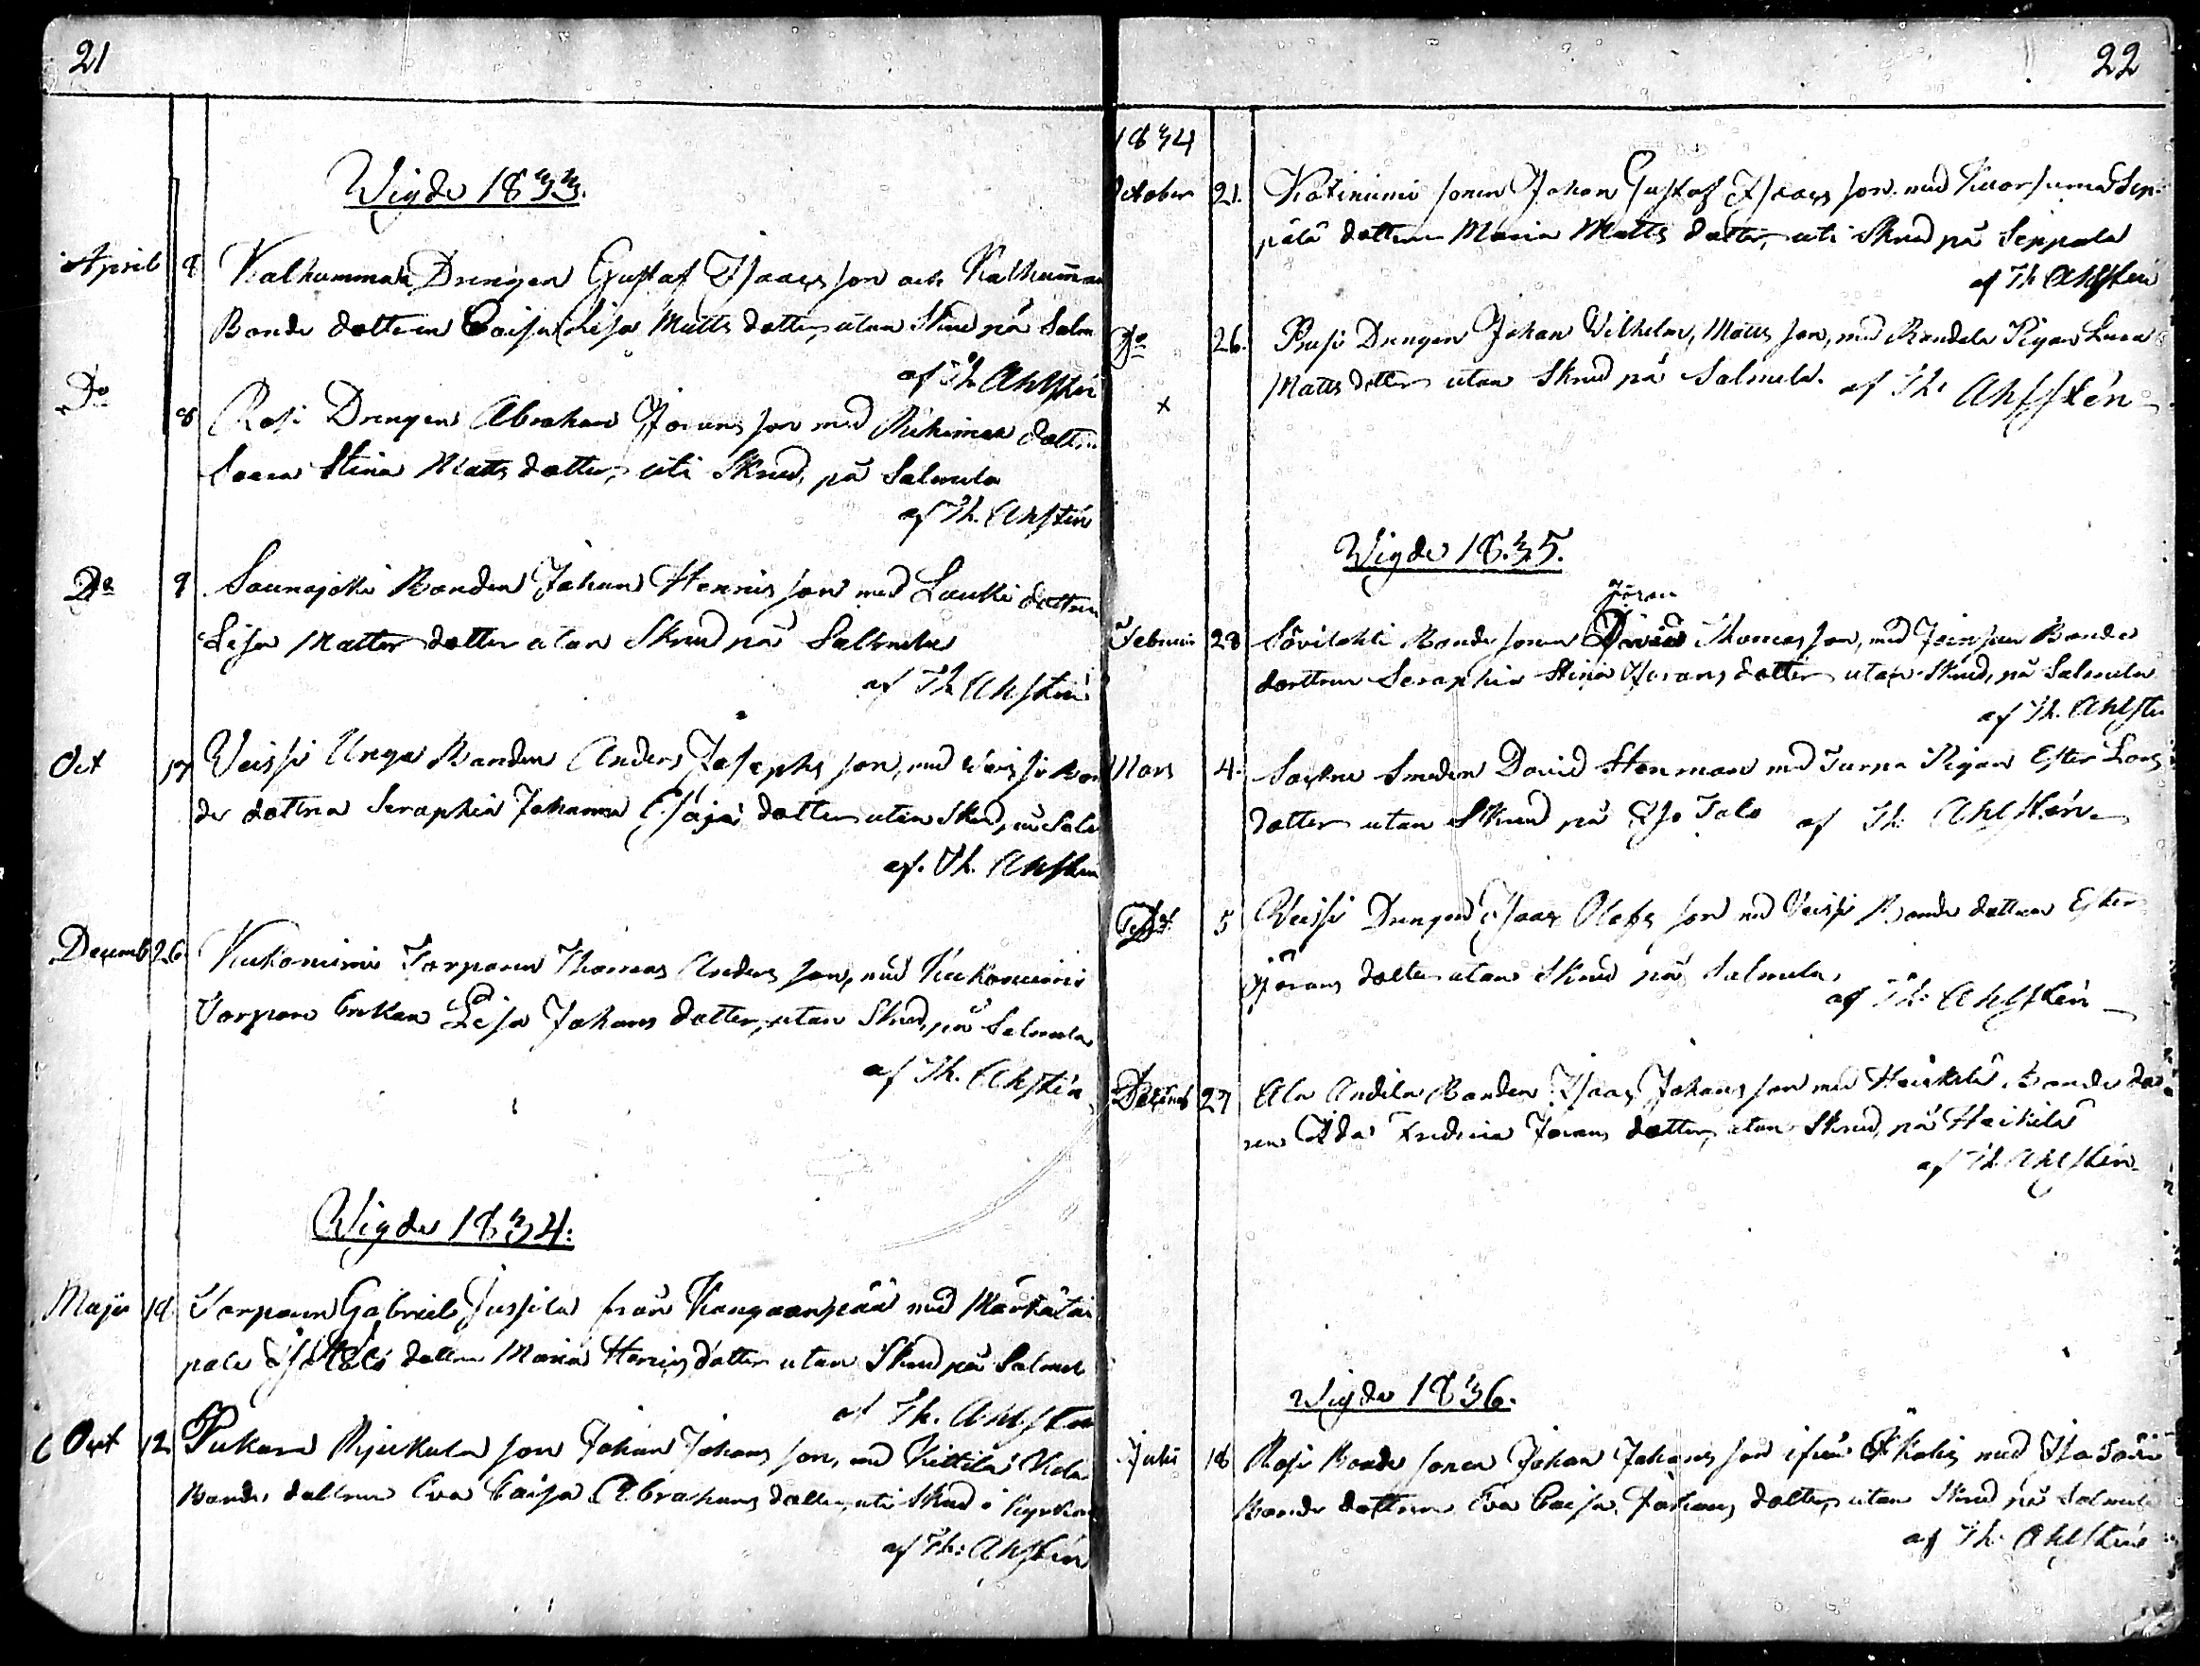 21
Wigde 1833.
April 8 Kalhumma Drengen Gustaf Isaacs son och Kalhumma
Bonde dottern Caisa Lisa Matts dotter, utan Skrud på Salm
af Th. Ahlstén
Do 8 Rosi Drengen Abraham Jörans son med dottren
Stina Matts dotter, uti Skrud, på Salmela
af Th. Ahlstén
Do 9 Saunajoki Bonden Johan Henrics son med Laukki dottren
Lisa Matts dotter utan Skrud på Salmela
af Th. Ahlstén
Oct 17 Veissi Unga Bonden Anders Josephs son, med Veissi Bon
de dottren Seraphia Johanna Esaja dotter utan Skrud, på Salm
af. Th. Ahlstén
Decemb 26. Kukoniemi Torparen Thomas Anders son, med Kukoniemi
Torpare Enkan Lisa Johans dotter, utan Skrud, på Salmela
af Th. Ahlstén
Wigde 1834.
Maji 19. Torparen Gabriel Jussila från Kangaanpää med
pale dottren Maria Henrics dotter utan Skrud på Salmel
af Th. Ahlstén
Oct 12 Pukara son Johan Johans son, med Kittilä
Bonde dottren Eva Caisa Abrahams dotter, uti Skrud i Kyrkan
af Th: Ahlstén
22
1834
October 21. Kotiniemi sonen Johan Gustaf Isaacs son med Sep
pälä dottren Maria Matts dotter, uti Skrud på Seppala
af Th Ahlstén
Do 26. Drengen Johan Vilhelm, Matts son, med Pigan
Matts dotter utan Skrud på Salmela. af Th: Ahlstén
x
Wigde 1835.
Jöran
Februar 28 Bonde sonen David Thomas son, med Bonde
dottren Seraphia Stina Jörans dotter utan Skrud, på Salmela
af Th. Ahlsté
Mars 4. Sockne Smeden David Stenman med Pigan Ester Lars
dotter utan Skrud på Iso Talo af Th: Ahlstén
5 Veissi Drengen Isaac Olofs son med Veissi Bonde dottren Ester
Jörans dotter utan Skrud på Salmela,
af Th: Ahlstén
Decemb 27 Ala Andila Bonden Isaac Johans son med Heikilä Bonde dot
ren Ida Fredrica Jörans dotter, utan Skrud, på Heikilä
af Th. Ahlstén
Wigde 1836.
Julii 18 Rosi Bonde sonen Johan Johans son ifrån med
Bonde dottren Eva Caisa, Johans dotter, utan Skrud på Salmela
af Th: Ahlstén